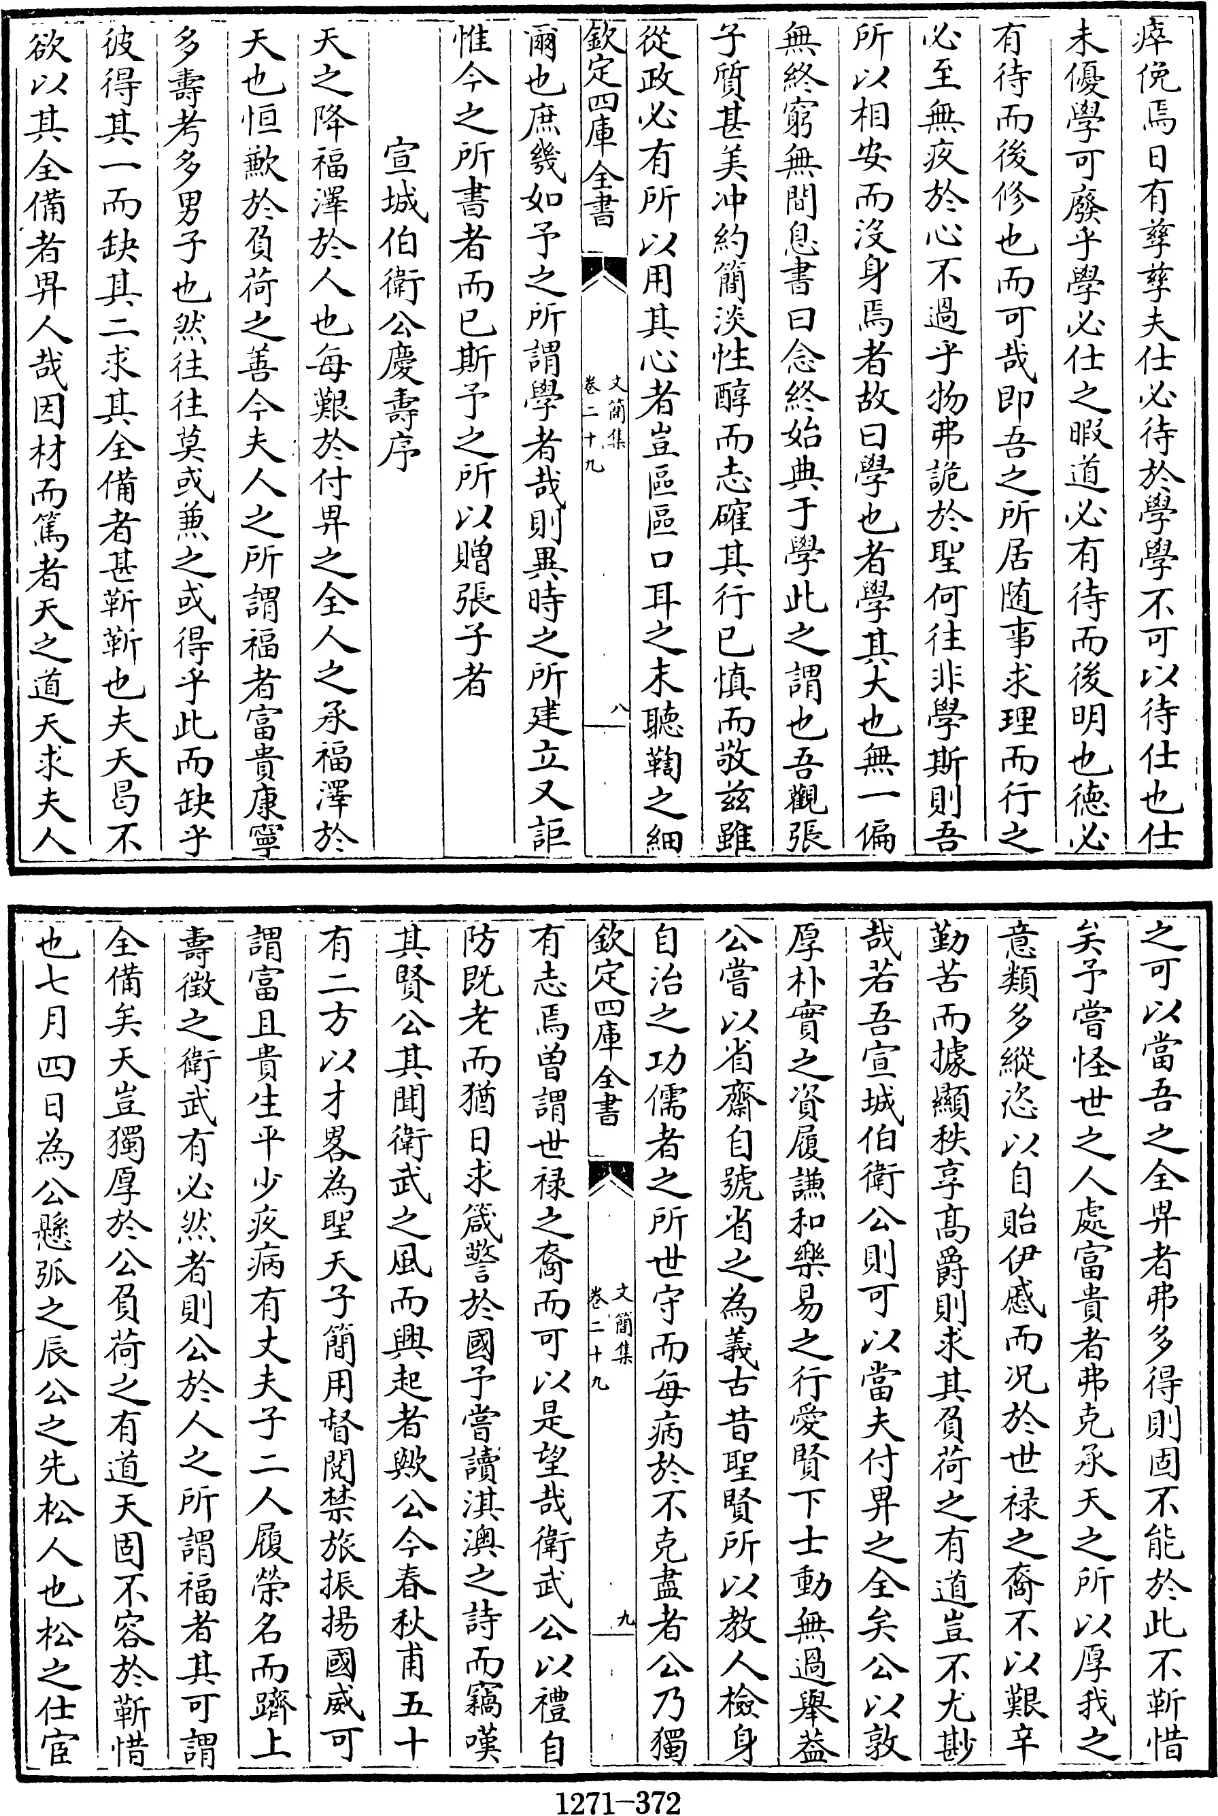 瘁俛焉日有孳孳夫仕必待於學學不可以待仕也仕
未優學可廢乎學必仕之暇道必有待而後明也德必
有待而後修也而可哉即吾之所居随事求理而行之
必至無疚於心不過乎物弗詭於聖何往非學斯則吾
所以相安而沒身焉者故曰學也者學其大也無一偏
無終窮無間息書曰念終始典于學此之謂也吾觀張
子質甚美冲約簡淡性醇而志確其行已慎而敬兹雖
從政必有所以用其心者豈區區口耳之末聽鞫之細
欽定四庫全書
文簡集
卷二十九
八
爾也庶幾如予之所謂學者哉則異時之所建立又詎
惟今之所書者而已斯予之所以贈張子者
宣城伯衛公慶壽序
天之降福澤於人也每艱於付畀之全人之承福澤於
天也恒歉於負荷之善今夫人之所謂福者富貴康寧
多壽考多男子也然往往莫或兼之或得乎此而缺乎
彼得其一而缺其二求其全備者甚靳靳也夫天曷不
欲以其全備者畀人哉因材而篤者天之道天求夫人
之可以當吾之全畀者弗多得則固不能於此不靳惜
矣予嘗怪世之人處富貴者弗克承天之所以厚我之
意類多縱恣以自貽伊慼而况於世禄之裔不以艱辛
勤苦而據顯秩享髙爵則求其負荷之有道豈不尤尠
哉若吾宣城伯衛公則可以當夫付畀之全矣公以敦
厚朴實之資履謙和樂易之行愛賢下士動無過舉葢
公嘗以省齋自號省之為義古昔聖賢所以教人檢身
自治之功儒者之所世守而每病於不克盡者公乃獨
欽定四庫全書
文簡集
卷二十九
九
有志焉曽謂世禄之裔而可以是望哉衛武公以禮自
防既老而猶日求箴警於國予嘗讀淇澳之詩而竊嘆
其賢公其聞衛武之風而興起者歟公今春秋甫五十
有二方以才畧為聖天子簡用督閱禁旅振揚國威可
謂富且貴生平少疢病有丈夫子二人履榮名而躋上
壽徵之衛武有必然者則公於人之所謂福者其可謂
全備矣天豈獨厚於公負荷之有道天固不容於靳惜
也七月四日為公懸弧之辰公之先松人也松之仕宦
1271—372